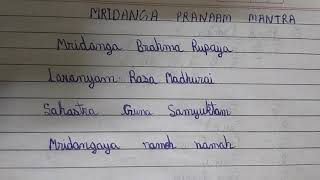 MRIDANGA PRANAAM MANTRA
Mridanga Brahma Rupaya
Laranyam Rasa Madhurai
Sahastra Guna Sanyuktam
Mridangaya namoh namah